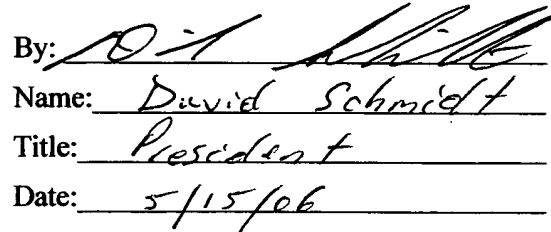 By:
Name: David Schmidt
Title: President
Date: 5/15/06